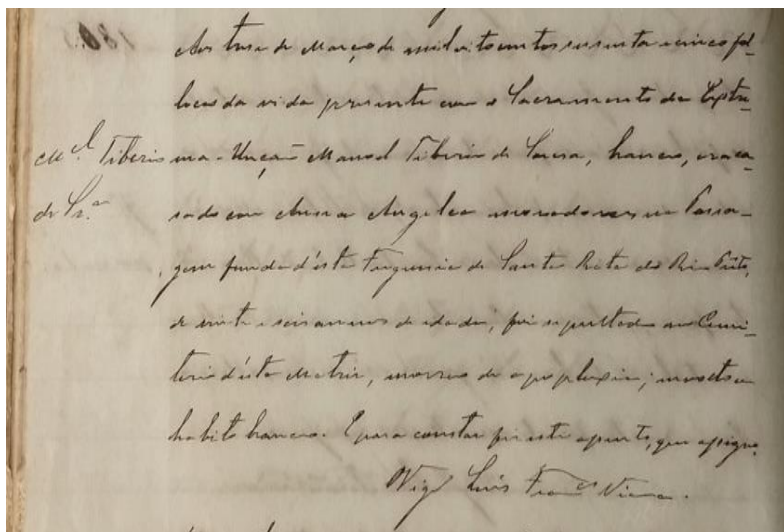 Aos trese de Março de mil oitocentos sessenta e cinco fal-
leceo da vida presente com o Sacramento da Extre-
ma-Unção Manoel Tiberio de Sousa, branco, era ca-
Mel. Tiberio
de Sz.a
sado com Anna Angelica moradores na Passa-
gem funda d'esta Freguesia de Santa Rita do Rio Preto,
de vinte e seis annos de idade; foi sepultado no Cemi-
terio d'esta Matriz, morreo de apoplexia; envolto em
habito branco. E para constar fiz este apunto, que assigno.
Vigº Luis Franco Vianna.